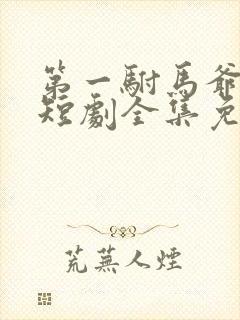 第一駙馬爺
短劇全集免
荒蕪人煙